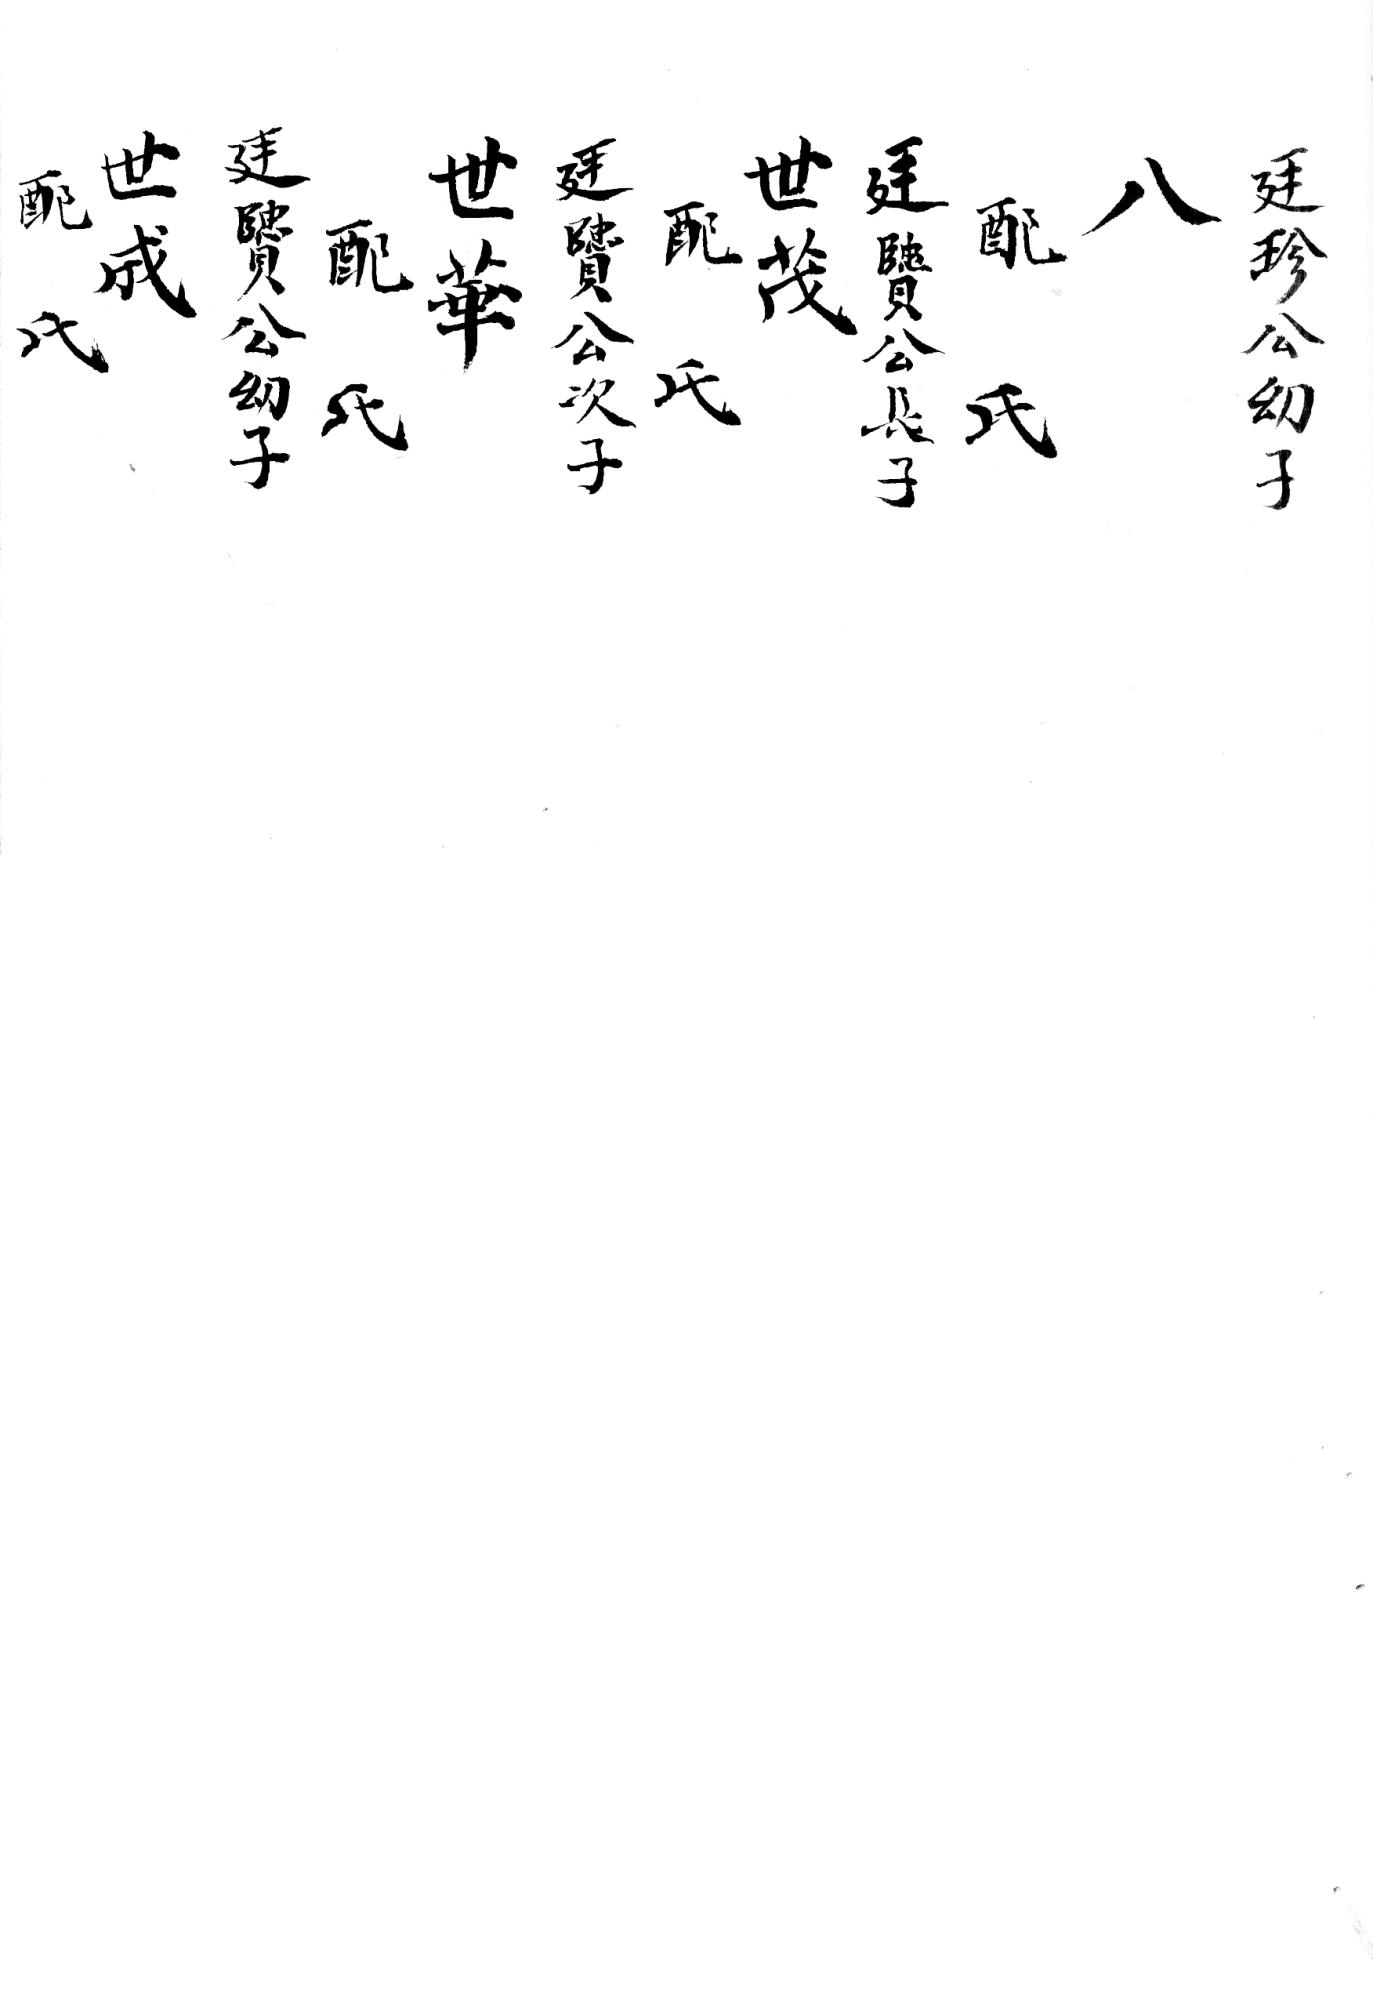 廷珍公幼子
八
配 氏
廷贒公長子
世茂
配 氏
廷贒公次子
世華
配 氏
廷贒公幼子
世成
配 氏